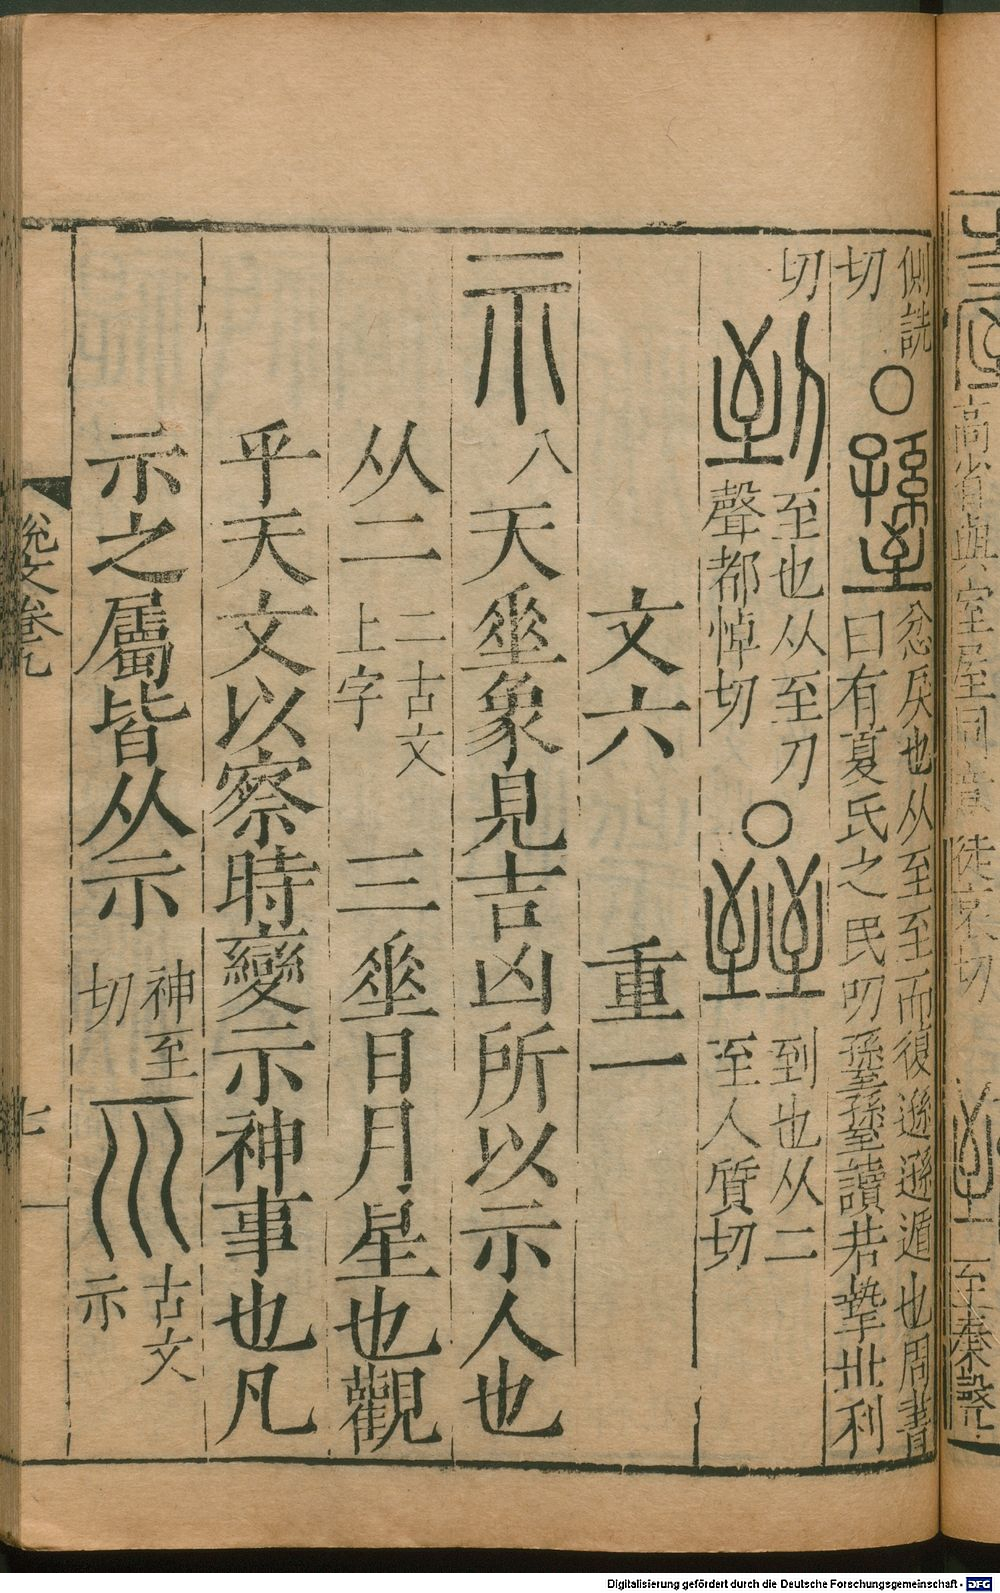 側詵
切
〇𦥎忿戾也从至至而復遜遜遁也周書
曰有夏氏之民叨𦥎𦥎讀若摯丑利
切
到至也从至刀
聲都悼切
〇臸到也从二
至人質切
文六 重一
示八天垂象見吉凶所以示人也
从二二古文上字 三垂日月星也觀
乎天文以察時變示神事也凡
示之屬皆从示神至切 𥘆古文示
說文卷九
七
高省與室屋同意
徒哀切
至
至秦聲
Digitalisierung gefördert durch die Deutsche Forschungsgemeinschaft - DFG